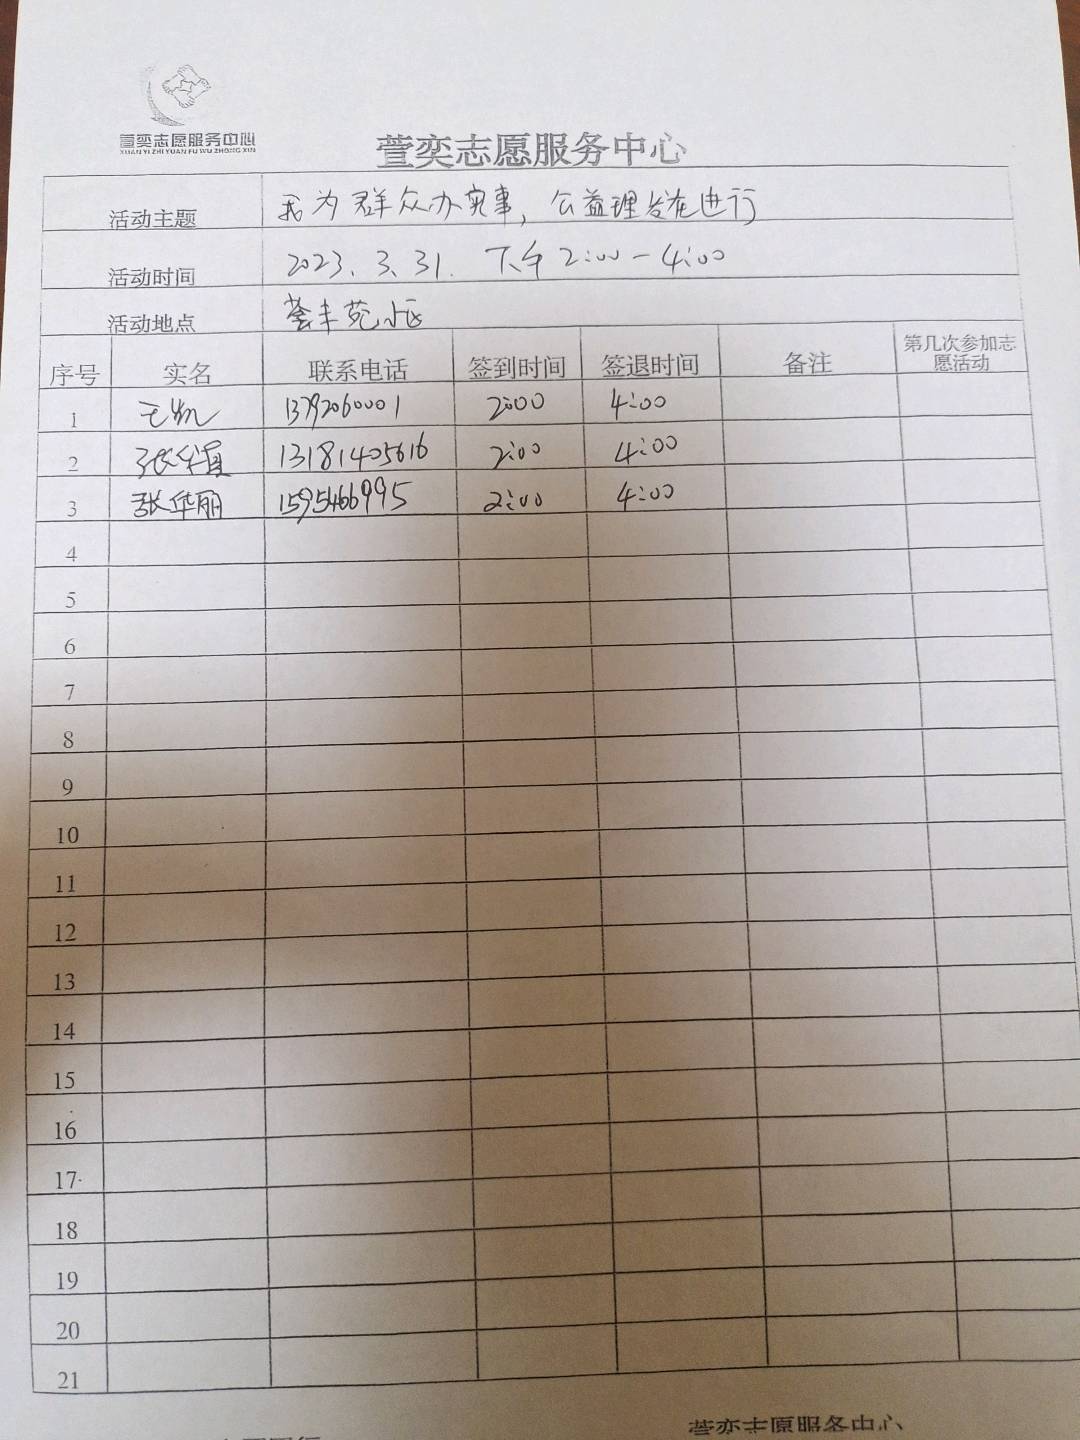 萱奕志愿服务中心
XUAN YI ZHI YUAN FU WU ZHONG XIN
萱奕志愿服务中心
活动主题 我为群众办实事，公益理发在进行
活动时间 2023.3.31. 下午2:00-4:00
活动地点 荟丰苑小区
序号 实名 联系电话 签到时间 签退时间 备注 第几次参加志愿活动
1 王凯 13792060001 2:00 4:00
2 13181405616 2:00 4:00
3 张华丽 1595466995 2:00 4:00
4
5
6
7
8
9
10
11
12
13
14
15
16
17
18
19
20
21
萱奕志愿服务中心